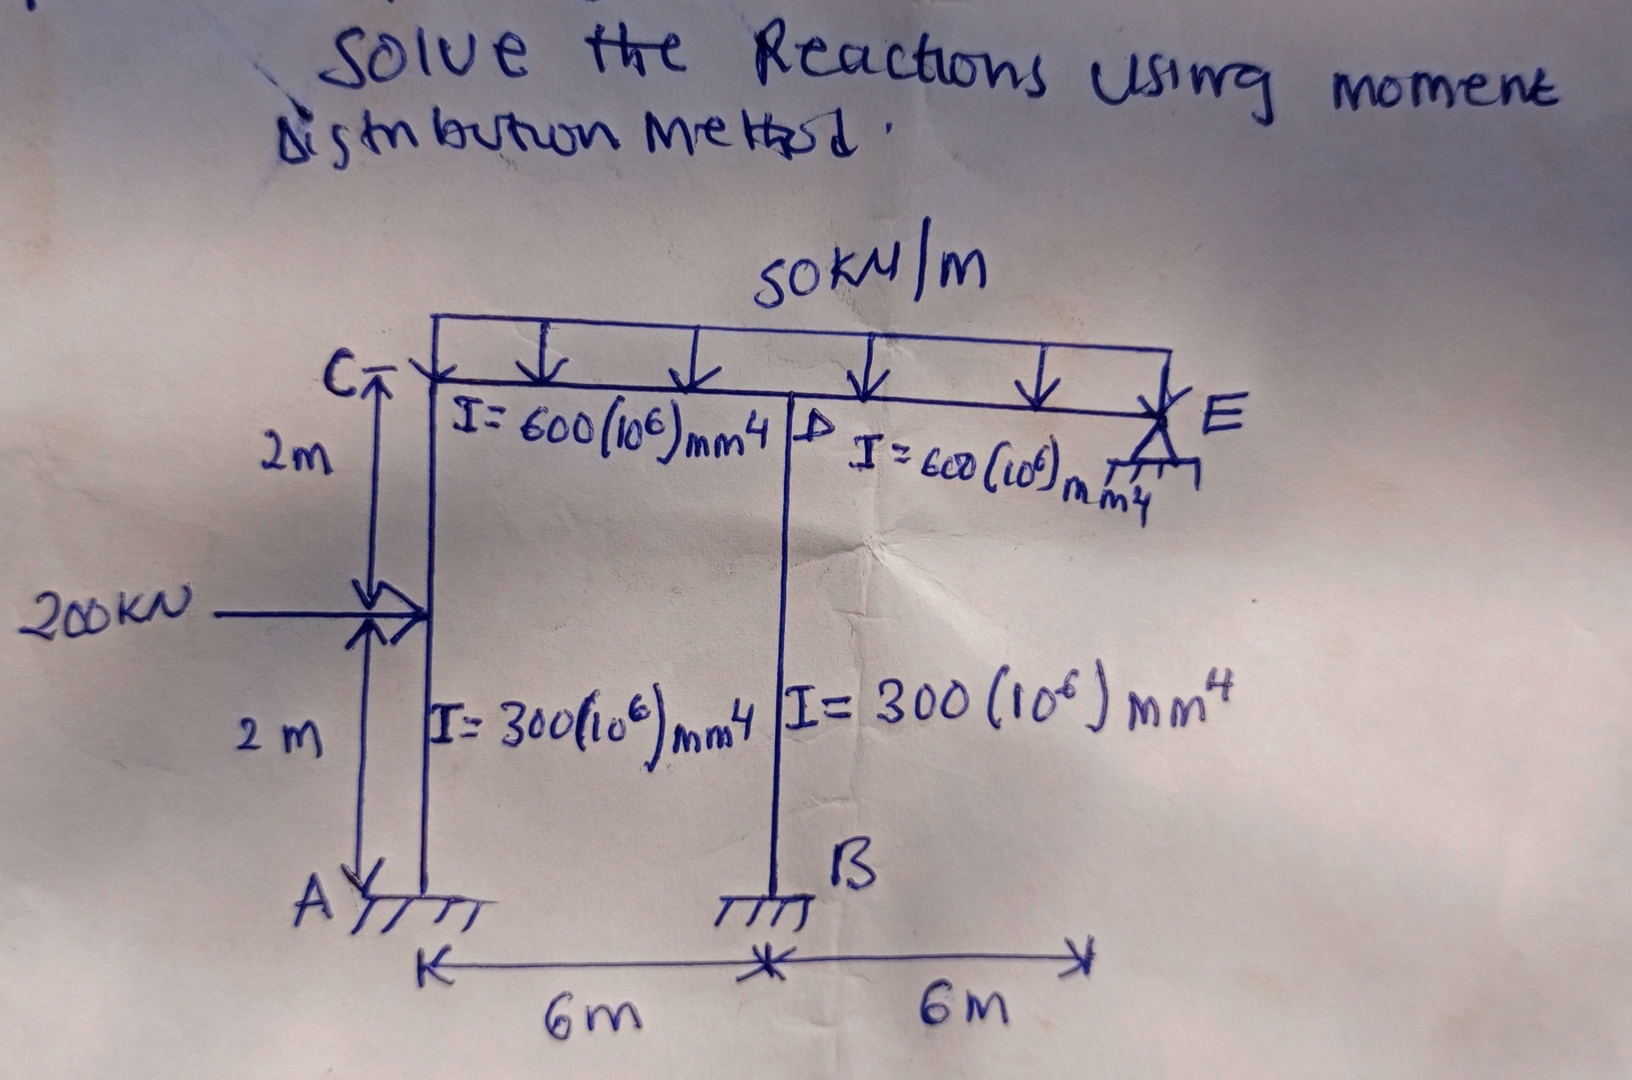 Solve the Reactions Using moment
Distribution Method.
50KN/m
C
E
I= 600(10⁶)mm⁴
D
I= 600(10⁶)mm⁴
2m
200KN
I= 300(10⁶)mm⁴
I= 300(10⁶)mm⁴
2m
A
B
6m
6m